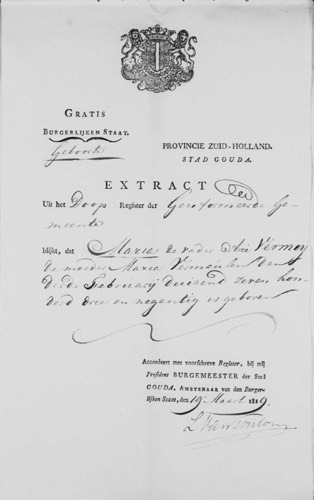 GRATIS
BURGERLIJKEN STAAT.
Geboorte
PROVINCIE ZUID-HOLLAND.
STAD GOUDA.
EXTRACT
Uit het Doop Register der Gereformeerde Ge-
meente
blijkt, dat Maria de vader Arie Vermey
de moeder Maria Vermeulen den
derde Februarij duizend zeven hon-
derd drie en negentig is geboren
Accordeert met voorschreve Register, bij mij
President BURGEMEESTER der Stad
GOUDA, AMBTENAAR van den Burger-
lijken Staat, den 19 Maart 1819.